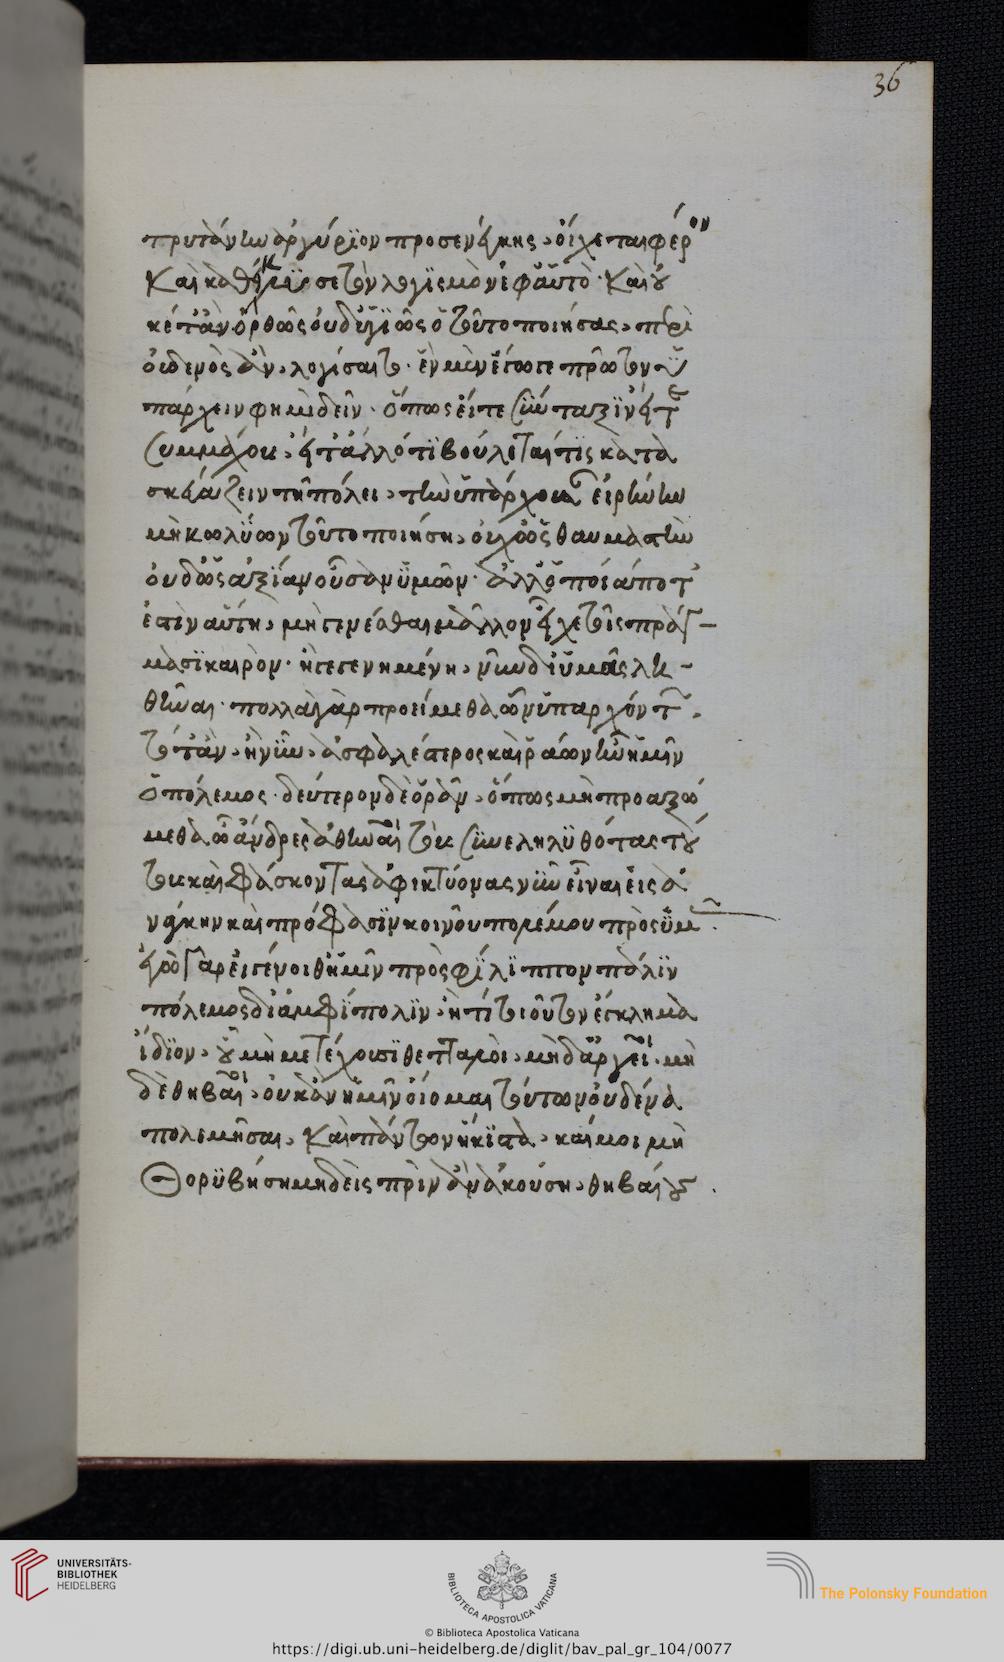 36
τρυτάνην ἀργύριον προσενέγκης, οἴχεται φέρον
καὶ καθείλκυσε τὸν λογισμὸν ἐφ' αὑτό· καὶ οὐ
κέτ' ἂν ὀρθῶς οὐδ' ὑγιῶς ὁ τοῦτο ποιήσας, περὶ
οὐδενὸς ἂν, λογίσαιτο· ἓν μὲν ἔγωγε πρῶτον ὑ
πάρχειν φημὶ δεῖν· ὅπως εἴτε σύνταξιν εἴτε
συμμάχους, εἴτ' ἄλλό τι βούλεταί τις κατα
σκευάζειν τῆ πόλει, τὴν ὑπάρχουσαν εἰρήνην
μὴ κωλύων τοῦτο ποιήση, οὐχ ὡς θαυμαστὴν
οὐδ' ὡς ἀξίαν οὖσαν ὑμῶν· ἀλλ' ὁποία ποτ'
ἐστὶν αὕτη, μὴ γενέσθαι μᾶλλον εἶχε τοῖς πράγ-
μασι καιρὸν· ἢ γεγενημένη, νῦν δι' ὑμᾶς λυ-
θῆναι· πολλὰ γὰρ προείμεθα ὧν ὑπαρχόντων,
τότ' ἂν, ἢ νῦν, ἀσφαλέστερος καὶ ῥάων ἦν ἡμῖν
ὁ πόλεμος· δεύτερον δὲ ὁρᾶν, ὅπως μὴ προαξώ
μεθα ὦ ἄνδρες ἀθηναῖοι τοὺς συνεληλυθότας τού
τους καὶ φάσκοντας ἀμφικτύονας νῦν εἶναι εἰς ἀ
νάγκην καὶ πρόφασιν κοινοῦ πολέμου πρὸς ὑμᾶς.
ἐγὼ γὰρ εἰ γένοιθ' ἡμῖν πρὸς φίλιππον πάλιν
πόλεμος δι' ἀμφίπολιν, ἤ τι τοιοῦτον ἔγκλημα
ἴδιον, οὗ μὴ μετέχουσι θετταλοὶ, μηδ' ἀργεῖοι, μη
δὲ θηβαῖοι, οὐκ ἂν ἡμῖν οἴομαι τούτων οὐδένα
πολεμῆσαι, καὶ πάντων ἥκιστα, καί μοι μὴ
θορυβήση μηδεὶς πρὶν ἂν ἀκούση, θηβαίους.
UNIVERSITÄTS-
BIBLIOTHEK
HEIDELBERG
BIBLIOTECA APOSTOLICA VATICANA
The Polonsky Foundation
© Biblioteca Apostolica Vaticana
https://digi.ub.uni-heidelberg.de/diglit/bav_pal_gr_104/0077